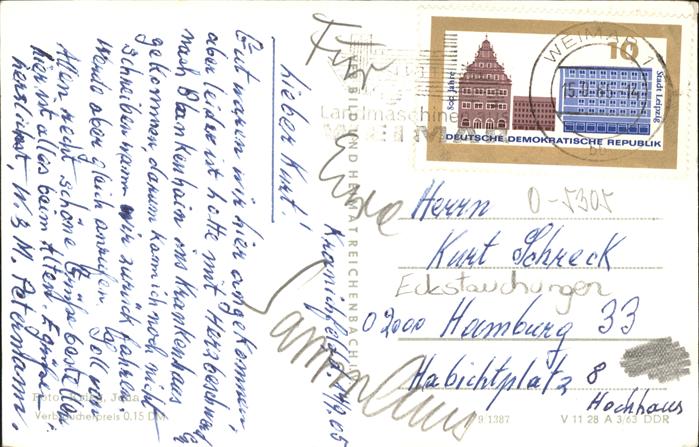 Kranichfeld. 14/9.65
Lieber Kurt!
Gut waren wir hier angekommen,
aber leider ist Lotte mit Herzbeschwerd
nach Blankenhain ins Krankenhaus
gekommen darum kann ich noch nicht
schreiben wann wir zurück fahren
werde aber gleich anrufen.
Allen recht schöne Grüße
hier ist alles beim Alten
herzlichst, W. & M. Petermann.
Foto: Jena
Verbraucherpreis 0.15 DM
VERBILD UND HEIMAT REICHENBACH
Für
Eure
Landmaschinen
WEIMAR 1
10
800 Jahre
Stadt Leipzig
DEUTSCHE DEMOKRATISCHE REPUBLIK
0-5305
Herrn
Kurt Schreck
Eckstauchungen
02000 Hamburg 33
Habichtplatz 8
Hochhaus
9/1387
V 11 28 A 3/63 DDR